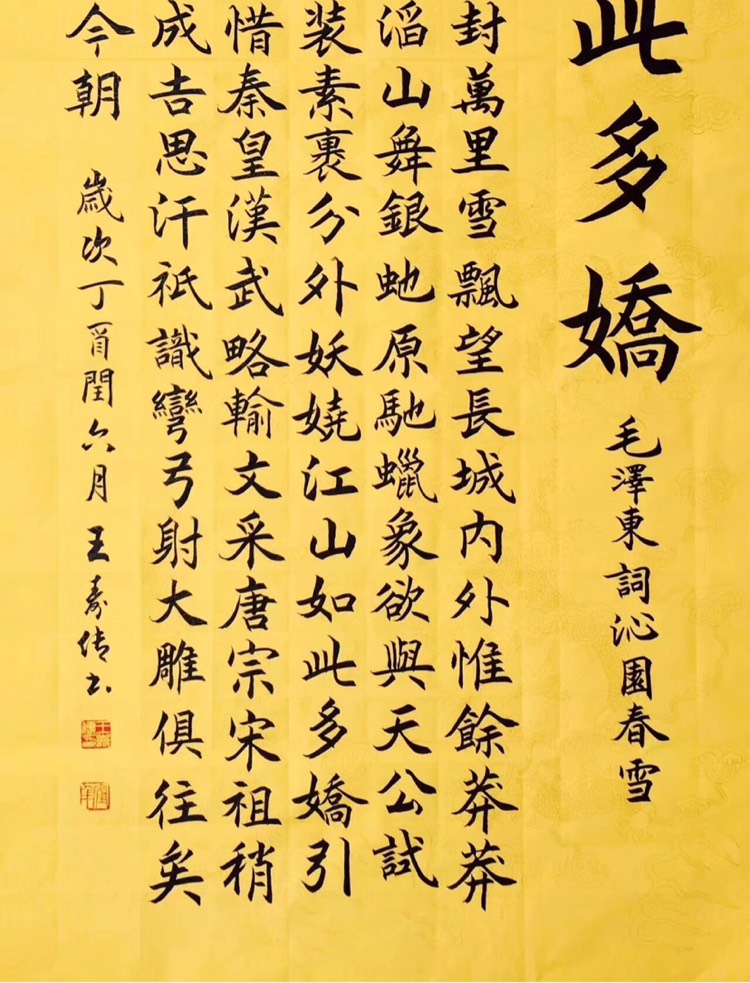 此多嬌
毛澤東詞沁園春雪
封萬里雪飄望長城内外惟餘莽莽
滔山舞銀虵原馳蠟象欲與天公試
装素裹分外妖嬈江山如此多嬌引
惜秦皇漢武略輸文采唐宗宋祖稍
成吉思汗祇識彎弓射大雕俱往矣
今朝
歲次丁酉閏六月王寿倩书